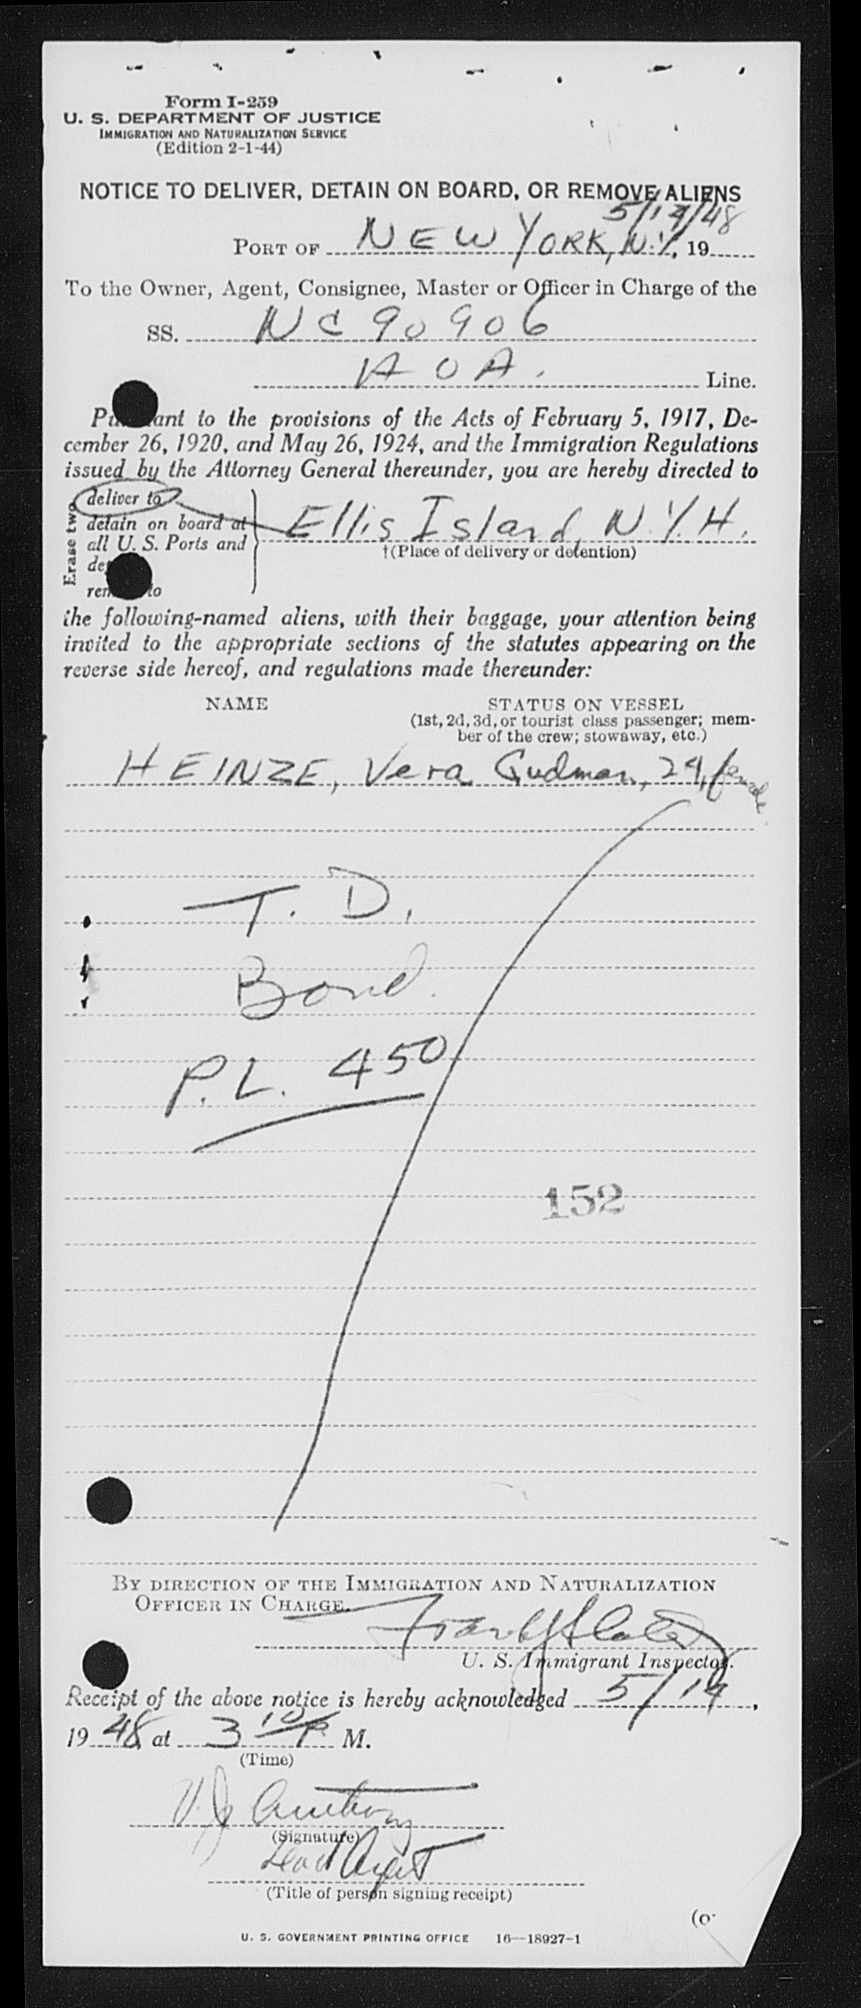 Form I-259
U. S. DEPARTMENT OF JUSTICE
IMMIGRATION AND NATURALIZATION SERVICE
(Edition 2-1-44)
NOTICE TO DELIVER, DETAIN ON BOARD, OR REMOVE ALIENS
5/14/48
PORT OF NEW YORK, N.Y., 19
To the Owner, Agent, Consignee, Master or Officer in Charge of the
SS. NC 90906
AOA. Line.
Pu ant to the provisions of the Acts of February 5, 1917, De-
cember 26, 1920, and May 26, 1924, and the Immigration Regulations
issued by the Attorney General thereunder, you are hereby directed to
Erase two
deliver to
detain on board at
all U. S. Ports and
de
rem to
Ellis Island, N.Y.H.
†(Place of delivery or detention)
the following-named aliens, with their baggage, your attention being
invited to the appropriate sections of the statutes appearing on the
reverse side hereof, and regulations made thereunder:
NAME STATUS ON VESSEL
(1st, 2d, 3d, or tourist class passenger; mem-
ber of the crew; stowaway, etc.)
HEINZE, Vera Gudman, 24, female
T. D.
Bond.
P.L. 450
152
BY DIRECTION OF THE IMMIGRATION AND NATURALIZATION
OFFICER IN CHARGE.
U. S. Immigrant Inspector.
Receipt of the above notice is hereby acknowledged 5/14,
1948 at 3 10 P. M.
(Time)
V. J. Anthony
(Signature)
Lead Agent
(Title of person signing receipt)
(o
U. S. GOVERNMENT PRINTING OFFICE 16—18927-1